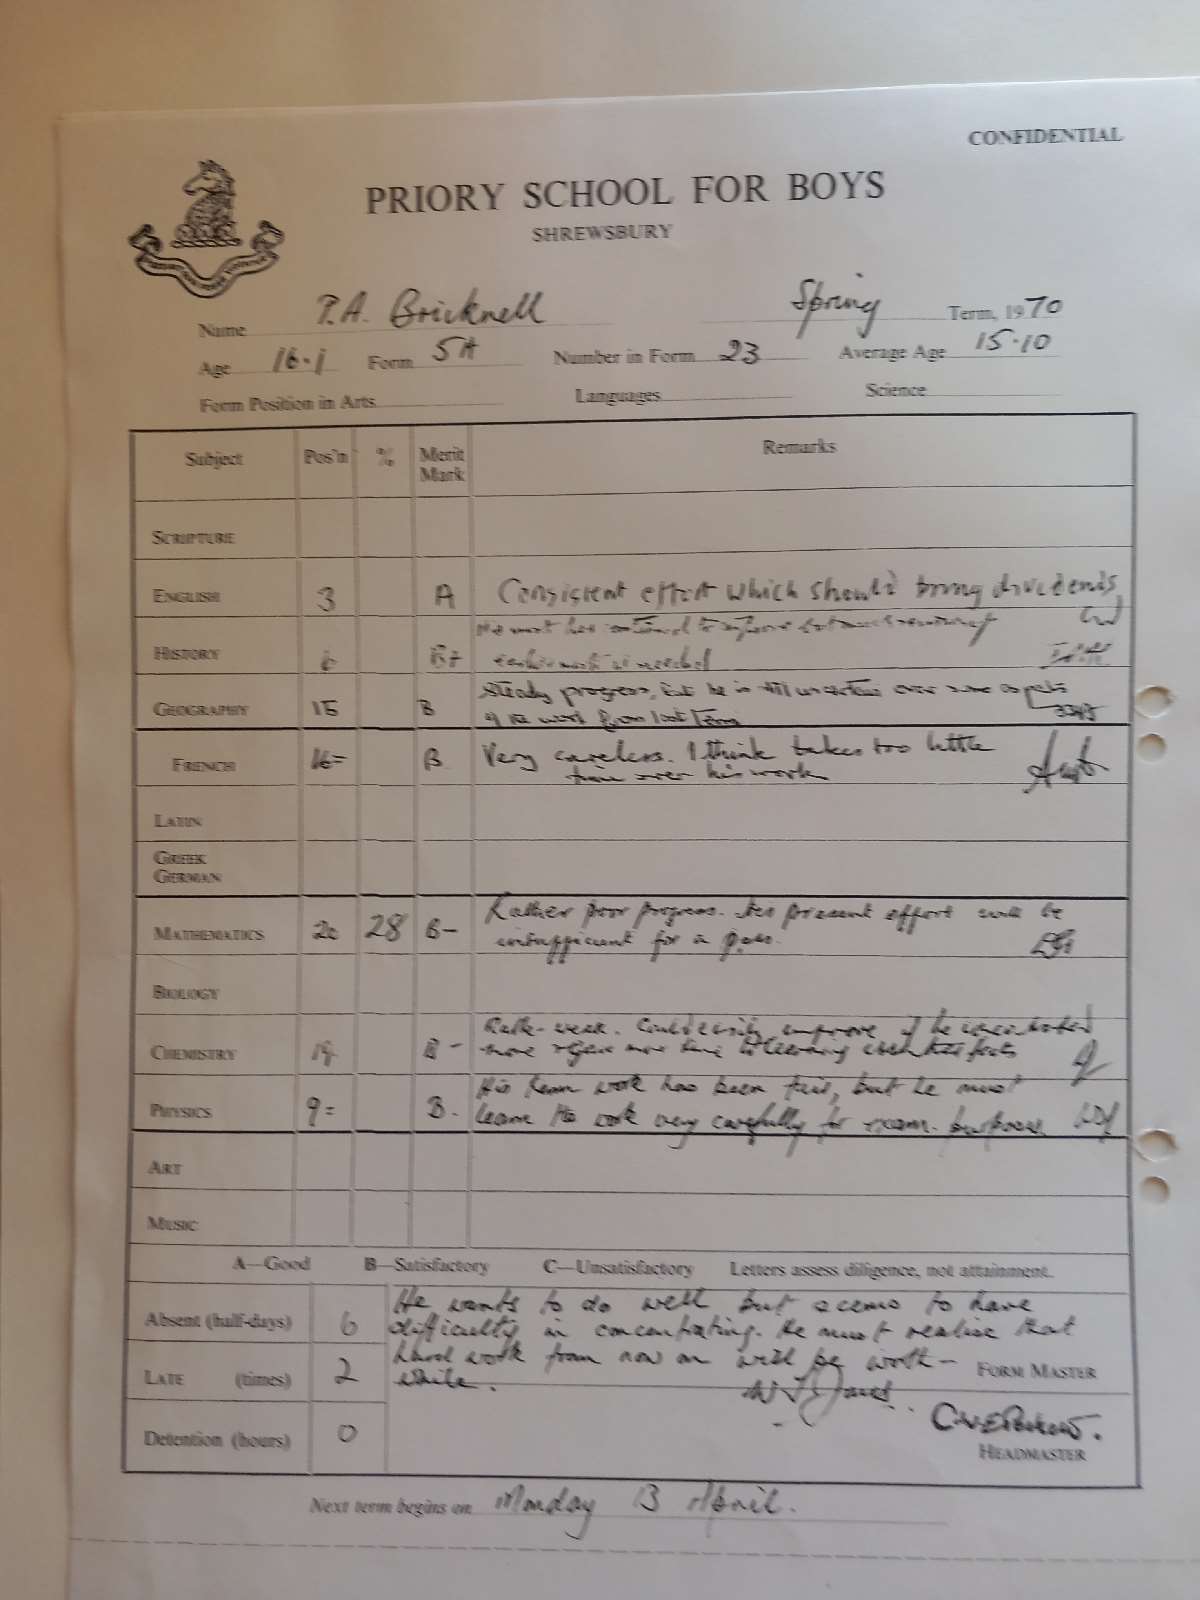 CONFIDENTIAL
PRIORY SCHOOL FOR BOYS
SHREWSBURY
Name P.A. Bricknell Spring Term, 1970
Age 16.1 Form 5A Number in Form 23 Average Age 15.10
Form Position in Arts Languages Science
Subject Pos'n % Merit Mark Remarks
SCRIPTURE
ENGLISH 3 A Consistent effort which should bring dividends
HISTORY 6 B+ His work has continued to improve but much
is needed
GEOGRAPHY 15 B Steady progress, but he is still uncertain over some aspects
of the work from last term
FRENCH 16= B Very careless. I think takes too little
time over his work
LATIN
GREEK
GERMAN
MATHEMATICS 20 28 B- Rather poor progress. His present effort will be
insufficient for a pass.
BIOLOGY
CHEMISTRY 19 B- Rather weak. Could easily improve if he concentrated
more & gave more time to learning essential facts
PHYSICS 9= B- His term work has been fair, but he must
learn the work very carefully for exam. purposes
ART
MUSIC
A—Good B—Satisfactory C—Unsatisfactory Letters assess diligence, not attainment.
Absent (half-days) 6
LATE (times) 2
Detention (hours) 0
He wants to do well but seems to have
difficulty in concentrating. He must realise that
hard work from now on will be worth-
while.
FORM MASTER
HEADMASTER
Next term begins on Monday 13 April.